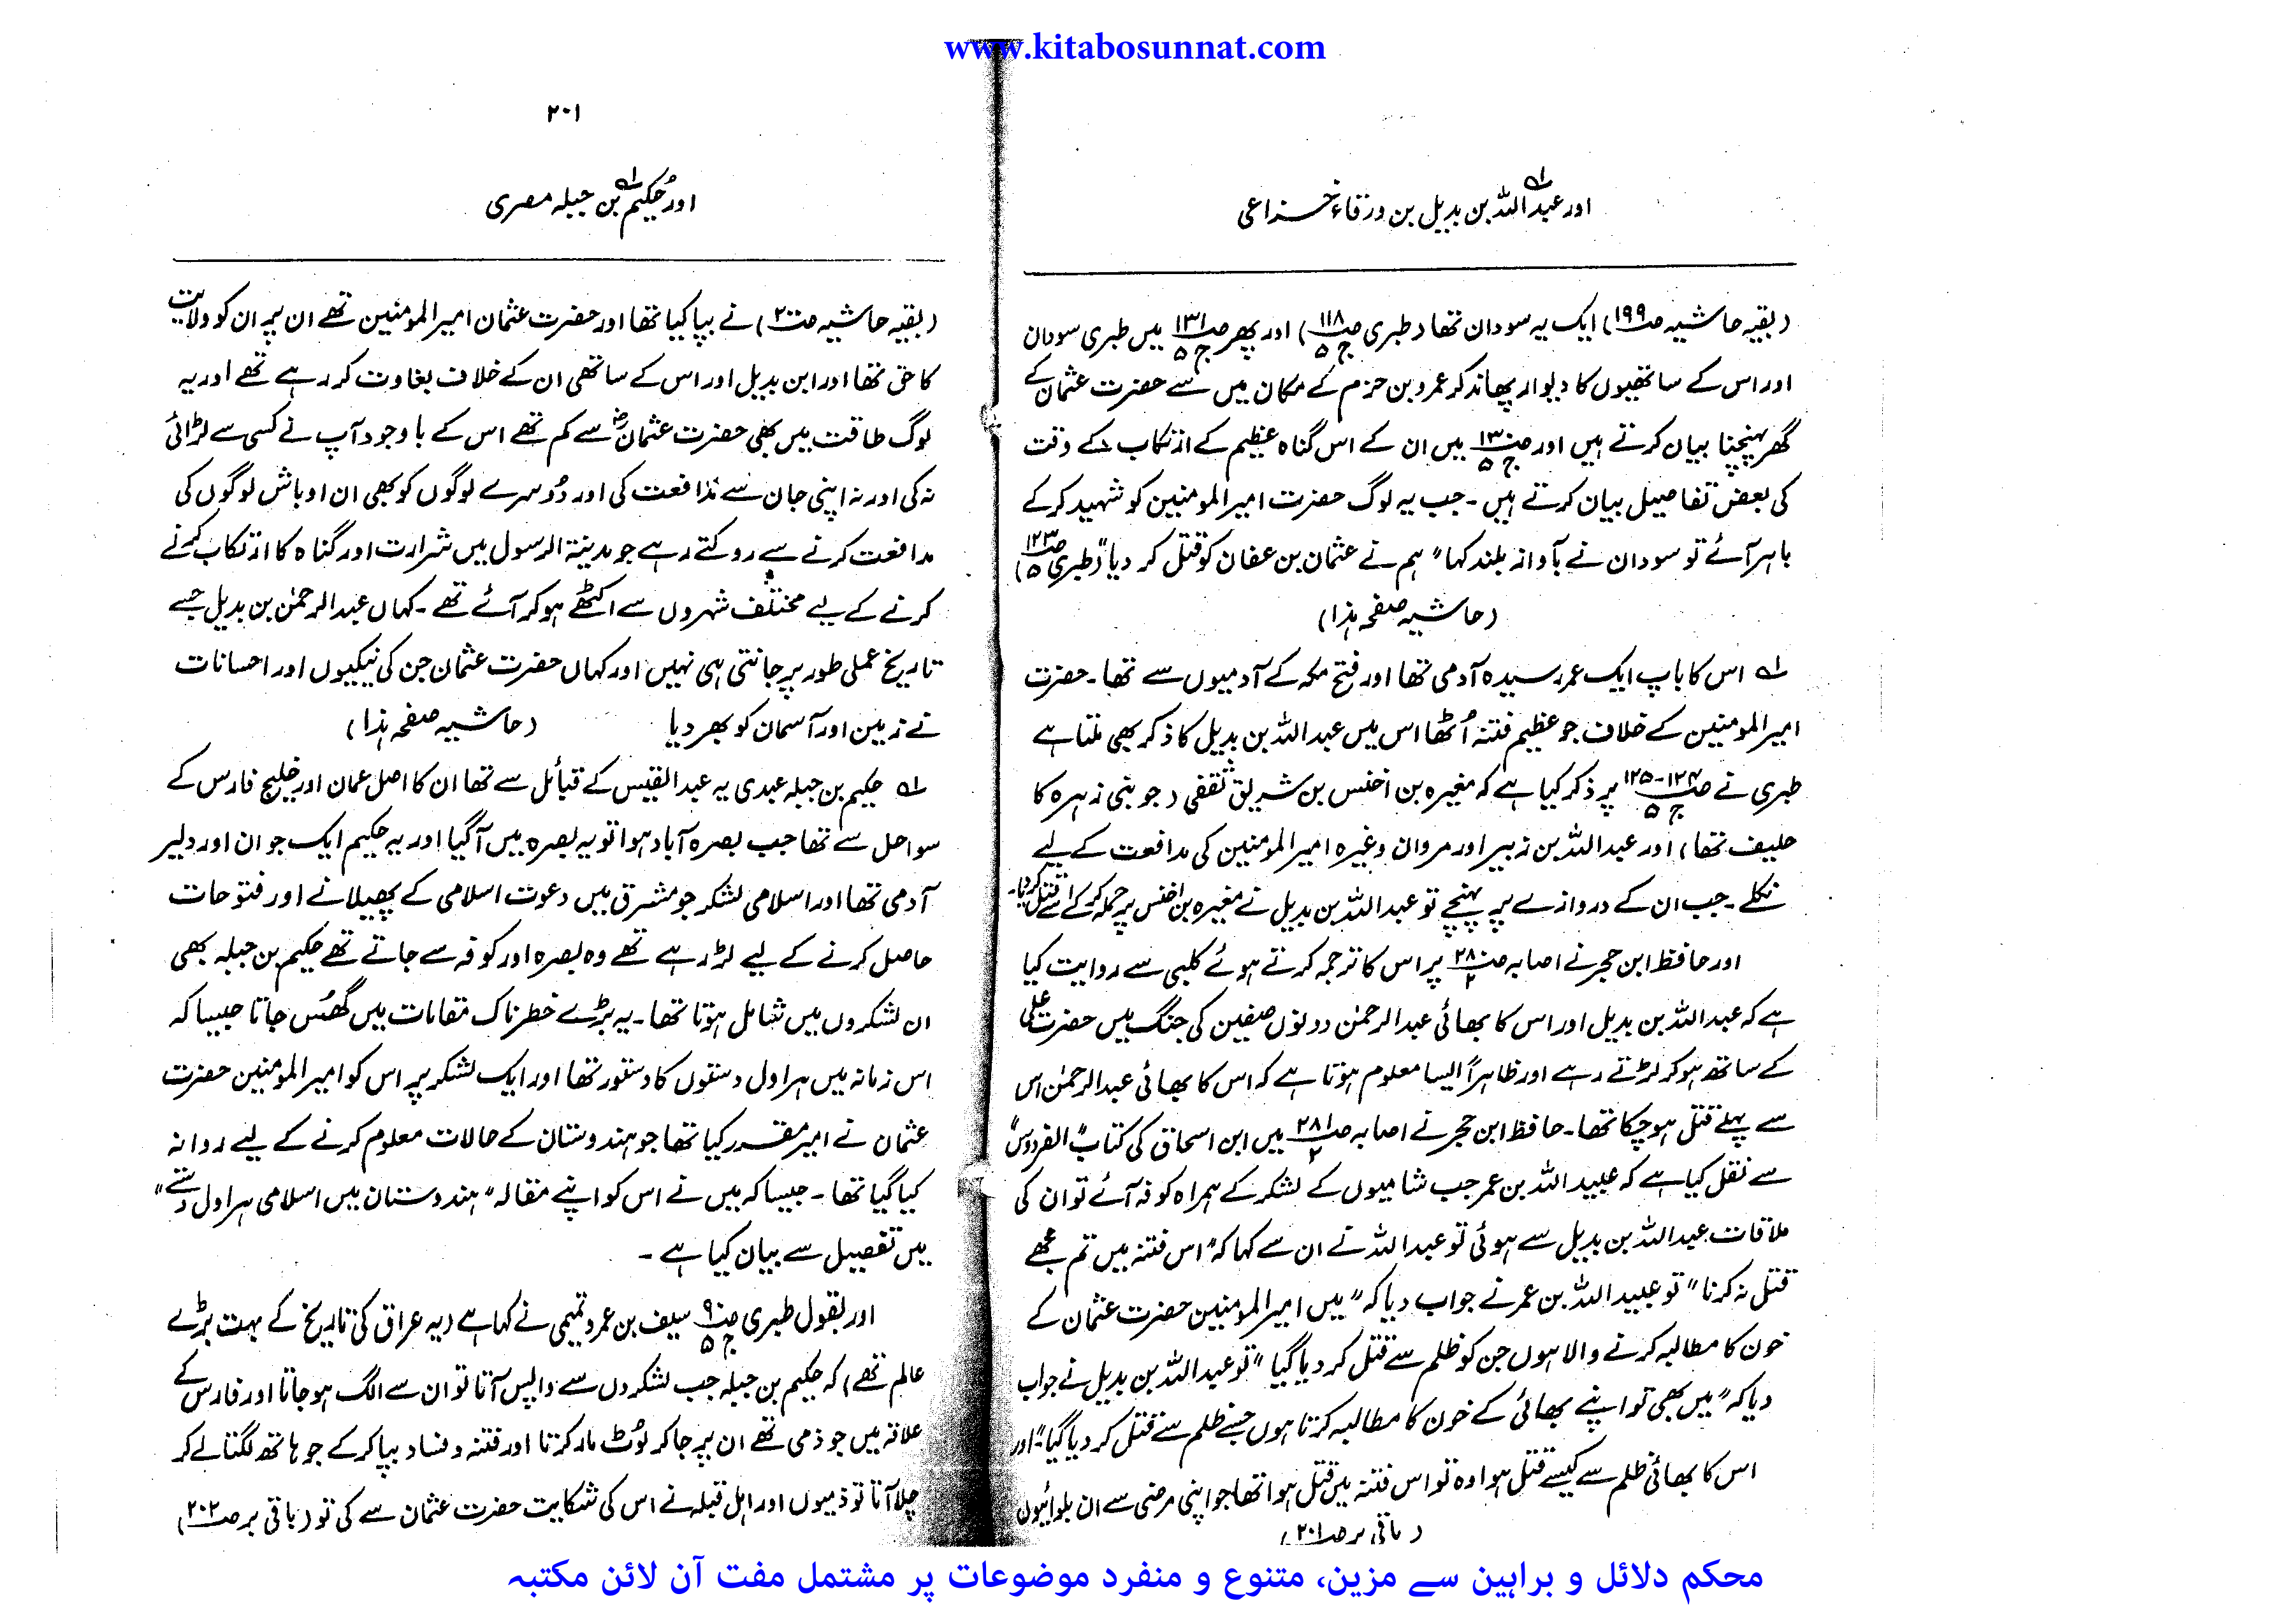 www.kitabosunnat.com
اور عبد اللہ بن بدیل بن ورقاء خزاعی
(بقیہ حاشیہ ص۱۹۹) ایک یہ سودان تھا (طبری ص۱۱۸ ج۵) اور پھر ص۱۳۱ ج۵ میں طبری سودان
اور اس کے ساتھیوں کا دیوار پھاند کر عمرو بن حزم کے مکان میں سے حضرت عثمان کے
گھر پہنچنا بیان کرتے ہیں اور ص۱۳۰ ج۵ میں ان کے اس گناہ عظیم کے ارتکاب کے وقت
کی بعض تفاصیل بیان کرتے ہیں۔ جب یہ لوگ حضرت امیر المومنین کو شہید کر کے
باہر آئے تو سودان نے بآواز بلند کہا "ہم نے عثمان بن عفان کو قتل کر دیا" (طبری ص۱۲۳ ج۵)
(حاشیہ صفحہ ہذا)
؎۱ اس کا باپ ایک عمر رسیدہ آدمی تھا اور فتح مکہ کے آدمیوں سے تھا۔ حضرت
امیر المومنین کے خلاف جو عظیم فتنہ اُٹھا اس میں عبد اللہ بن بدیل کا ذکر بھی ملتا ہے
طبری نے ص۱۲۴-۱۲۵ ج۵ پر ذکر کیا ہے کہ مغیرہ بن اخنس بن شریق ثقفی (جو بنی زہرہ کا
حلیف تھا) اور عبد اللہ بن زبیر اور مروان وغیرہ امیر المومنین کی مدافعت کے لیے
نکلے۔ جب ان کے دروازے پر پہنچے تو عبد اللہ بن بدیل نے مغیرہ بن اخنس پر حملہ کر کے اسے قتل کر دیا۔
اور حافظ ابن حجر نے اصابہ ص۲۸۰ ۲ پر اس کا ترجمہ کرتے ہوئے کلبی سے روایت کیا
ہے کہ عبد اللہ بن بدیل اور اس کا بھائی عبد الرحمٰن دونوں صفین کی جنگ میں حضرت علی
کے ساتھ ہو کر لڑتے رہے اور ظاہراً ایسا معلوم ہوتا ہے کہ اس کا بھائی عبد الرحمٰن اس
سے پہلے قتل ہو چکا تھا۔ حافظ ابن حجر نے اصابہ ص۲۸۱ ۲ میں ابن اسحاق کی کتاب "الفردوس"
سے نقل کیا ہے کہ عبید اللہ بن عمر جب شامیوں کے لشکر کے ہمراہ کوفہ آئے تو ان کی
ملاقات عبد اللہ بن بدیل سے ہوئی تو عبد اللہ نے ان سے کہا کہ "اس فتنہ میں تم مجھے
قتل نہ کرنا" تو عبید اللہ بن عمر نے جواب دیا کہ "میں امیر المومنین حضرت عثمان کے
خون کا مطالبہ کرنے والا ہوں جن کو ظلم سے قتل کر دیا گیا" تو عبد اللہ بن بدیل نے جواب
دیا کہ "میں بھی تو اپنے بھائی کے خون کا مطالبہ کرتا ہوں جسے ظلم سے قتل کر دیا گیا" اور
اس کا بھائی ظلم سے کیسے قتل ہوا وہ تو اس فتنہ میں قتل ہوا تھا جو اپنی مرضی سے ان بلوائیوں
(باقی بر ص۲۰۱)
۲۰۱
اور حُکیم بن جبلہ مصری
(بقیہ حاشیہ ص۲۰۰) نے بپا کیا تھا اور حضرت عثمان امیر المومنین تھے ان پر ان کو ولایت
کا حق تھا اور ابن بدیل اور اس کے ساتھی ان کے خلاف بغاوت کر رہے تھے اور یہ
لوگ طاقت میں بھی حضرت عثمانؓ سے کم تھے اس کے باوجود آپ نے کسی سے لڑائی
نہ کی اور نہ اپنی جان سے مدافعت کی اور دُوسرے لوگوں کو بھی ان اوباش لوگوں کی
مدافعت کرنے سے روکتے رہے جو مدینۃ الرسول میں شرارت اور گناہ کا ارتکاب کرنے
کرنے کے لیے مختلف شہروں سے اکٹھے ہو کر آئے تھے۔ کہاں عبد الرحمٰن بن بدیل جسے
تاریخ عملی طور پر جانتی ہی نہیں اور کہاں حضرت عثمان جن کی نیکیوں اور احسانات
نے زمین اور آسمان کو بھر دیا (حاشیہ صفحہ ہذا)
؎۱ حکیم بن جبلہ عبدی یہ عبد القیس کے قبائل سے تھا ان کا اصل عمان اور خلیج فارس کے
سواحل سے تھا جب بصرہ آباد ہوا تو یہ بصرہ میں آگیا اور یہ حکیم ایک جوان اور دلیر
آدمی تھا اور اسلامی لشکر جو مشرق میں دعوت اسلامی کے پھیلانے اور فتوحات
حاصل کرنے کے لیے لڑ رہے تھے وہ بصرہ اور کوفہ سے جاتے تھے حکیم بن جبلہ بھی
ان لشکروں میں شامل ہوتا تھا۔ یہ بڑے خطرناک مقامات میں گھُس جاتا جیسا کہ
اس زمانہ میں ہراول دستوں کا دستور تھا اور ایک لشکر پر اس کو امیر المومنین حضرت
عثمان نے امیر مقرر کیا تھا جو ہندوستان کے حالات معلوم کرنے کے لیے روانہ
کیا گیا تھا۔ جیسا کہ میں نے اس کو اپنے مقالہ "ہندوستان میں اسلامی ہراول دستے"
میں تفصیل سے بیان کیا ہے۔
اور بقول طبری ص۹۰ ج۵ سیف بن عمرو تمیمی نے کہا ہے (یہ عراق کی تاریخ کے بہت بڑے
عالم تھے) کہ حکیم بن جبلہ جب لشکروں سے واپس آتا تو ان سے الگ ہو جاتا اور فارس کے
علاقہ میں جو ذمی تھے ان پر جا کر لُوٹ مار کرتا اور فتنہ و فساد بپا کر کے جو ہاتھ لگتا لے کر
چلا آتا تو ذمیوں اور اہل قبلہ نے اس کی شکایت حضرت عثمان سے کی تو (باقی بر ص۲۰۲)
محکم دلائل و براہین سے مزین، متنوع و منفرد موضوعات پر مشتمل مفت آن لائن مکتبہ